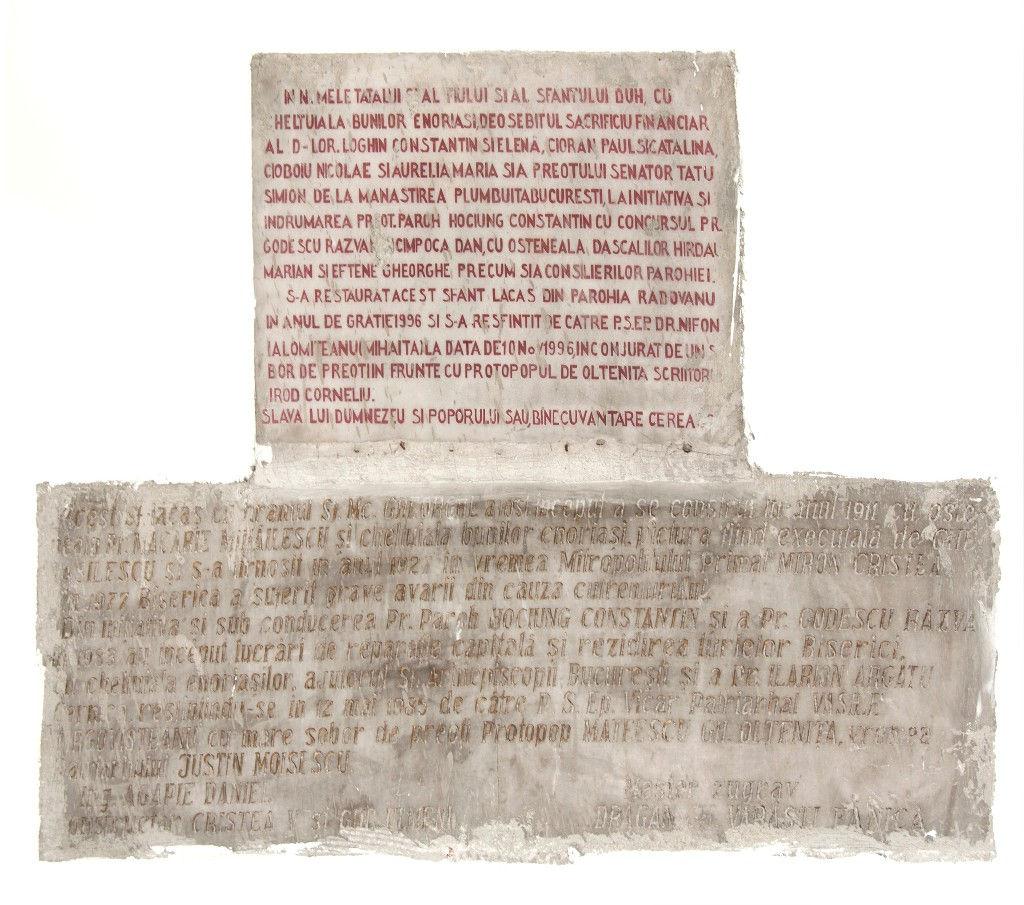 IN N. MELE TATALUI SI AL FIULUI SI AL SFANTULUI DUH, CU
HELTUIALA BUNILOR ENORIASI, DEOSEBITUL SACRIFICIU FINANCIAR
AL D-LOR. LOGHIN CONSTANTIN SI ELENA, CIORAN PAUL SI CATALINA,
CIOBOIU NICOLAE SI AURELIA, MARIA SI A PREOTULUI SENATOR TATU
SIMION DE LA MANASTIREA PLUMBUITA BUCURESTI, LA INITIATIVA SI
INDRUMAREA PREOT. PAROH HOCIUNG CONSTANTIN CU CONCURSUL PR.
GODESCU RAZVAN CIMPOCA DAN, CU OSTENEALA DASCALILOR HIRDAU
MARIAN SI EFTENE GHEORGHE PRECUM SI A CONSILIERILOR PAROHIEI.
S-A RESTAURAT ACEST SFANT LACAS DIN PAROHIA RADOVANU
IN ANUL DE GRATIE 1996 SI S-A RESFINTIT DE CATRE P.S.EP. DR. NIFON
IALOMITEANU (MIHAITA) LA DATA DE 10 NOV 1996, INCONJURAT DE UN S
BOR DE PREOTI IN FRUNTE CU PROTOPOPUL DE OLTENITA SCRIITORI
IROD CORNELIU.
SLAVA LUI DUMNEZEU SI POPORULUI SAU, BINECUVANTARE CEREA
hramul și a fost început a se construi în anul 1911 cu
Pr. MACARIE MIHĂILESCU și cheltuiala bunilor enoriași, pictura fiind executată de
SILESCU și s-a tîrnosit în anul 1927 în vremea Mitropolitului Primat MIRON CRISTEA
1977 Biserica a suferit grave avarii din cauza cutremurului.
Din inițiativa și sub conducerea Pr. Paroh HOCIUNG CONSTANTIN și a Pr. GODESCU RĂZVA
au început lucrări de reparație capitală și rezidirea turlelor Bisericii,
cheltuiala enoriașilor, ajutorul București și a Pr. ILARION ARGATU
resfințindu-se în 12 mai de către P. S. Ep. Vicar Patriarhal VASILE
TÎRGOVIȘTEANU cu mare sobor de preoți Protopop MATEESCU GH. OLTENIȚA, vremea
JUSTIN MOISESCU.
Ing AGAPIE DANIEL Meșter zugrav
CRISTEA V și DRAGAN